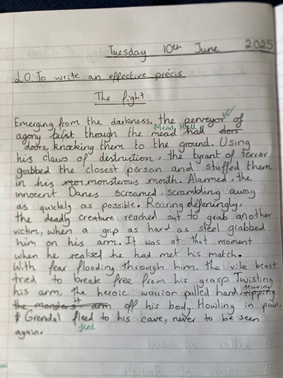 Tuesday 10th June 2025
L.O. To write an effective précis
The fight
Emerging from the darkness, the perveyor of
Mead Hall
agony burst through the mead hall dors
doors, knocking them to the ground. Using
his claws of destruction, the tyrant of terror
grabbed the closest person and stuffed them
in his monsterous mouth. Alarmed, the
innocent Danes screamed, scrambling away
as quickly as possible. Roaring defeningly,
the deadly creature reached out to grab another
victim, when a grip as hard as steel grabbed
him on his arm. It was at that moment
when he realised he had met his match.
With fear flooding through him, the vile beast
tried to break free from his grasp. Twisting
his arm, the heroic warrior pulled hard, ripping
it
the monsters arm off his body. Howling in pain
Grendal fleed to his cave, never to be seen
again. fled